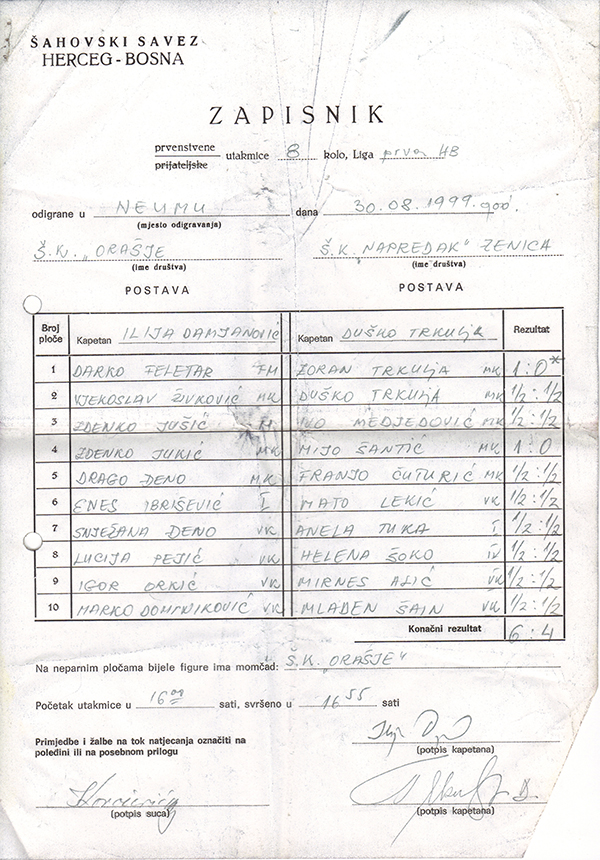 ŠAHOVSKI SAVEZ
HERCEG-BOSNA
ZAPISNIK
prvenstvene
prijateljske
utakmice 8 kolo, Liga prva HB
odigrane u NEUMU dana 30.08.1999.god.
(mjesto odigravanja)
Š.K. „ORAŠJE Š.K. „NAPREDAK" ZENICA
(ime društva) (ime društva)
POSTAVA POSTAVA
Broj ploče Kapetan ILIJA DAMJANOVIĆ Kapetan DUŠKO TRKULJA Rezultat
1 DARKO FELETAR FM ZORAN TRKULJA MK 1:0*
2 VJEKOSLAV ŽIVKOVIĆ MK DUŠKO TRKULJA MK 1/2:1/2
3 ZDENKO JUŠIĆ M IVO MEDJEDOVIĆ MK 1/2:1/2
4 ZDENKO JUKIĆ MK MIJO ŠANTIĆ MK 1:0
5 DRAGO ĐENO MK FRANJO ČUTURIĆ MK 1/2:1/2
6 ENES IBRIŠEVIĆ I MATO LEKIĆ VK 1/2:1/2
7 SNJEŽANA ĐENO VK ANELA TUKA I 1/2:1/2
8 LUCIJA PEJIĆ VK HELENA ŠOKO IV 1/2:1/2
9 IGOR ORKIĆ VK MIRNES ALIĆ VK 1/2:1/2
10 MARKO DOMINIKOVIĆ VK MLADEN ŠAIN VK 1/2:1/2
Konačni rezultat 6:4
Na neparnim pločama bijele figure ima momčad: Š.K. ORAŠJE"
Početak utakmice u 16 00 sati, svršeno u 16 55 sati
Primjedbe i žalbe na tok natjecanja označiti na
poleđini ili na posebnom prilogu
(potpis kapetana)
(potpis suca) (potpis kapetana)